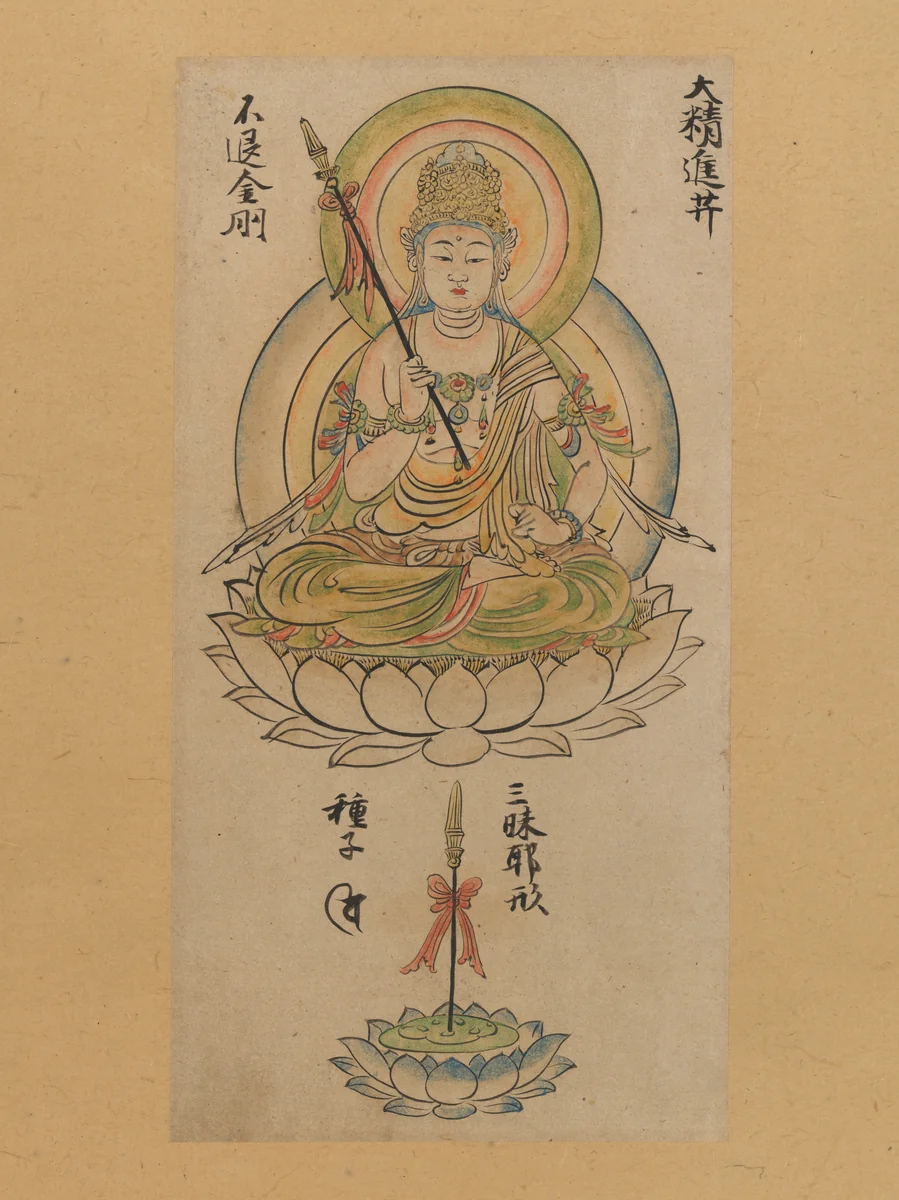 大精進菩
不退金剛
三昧耶形
種子